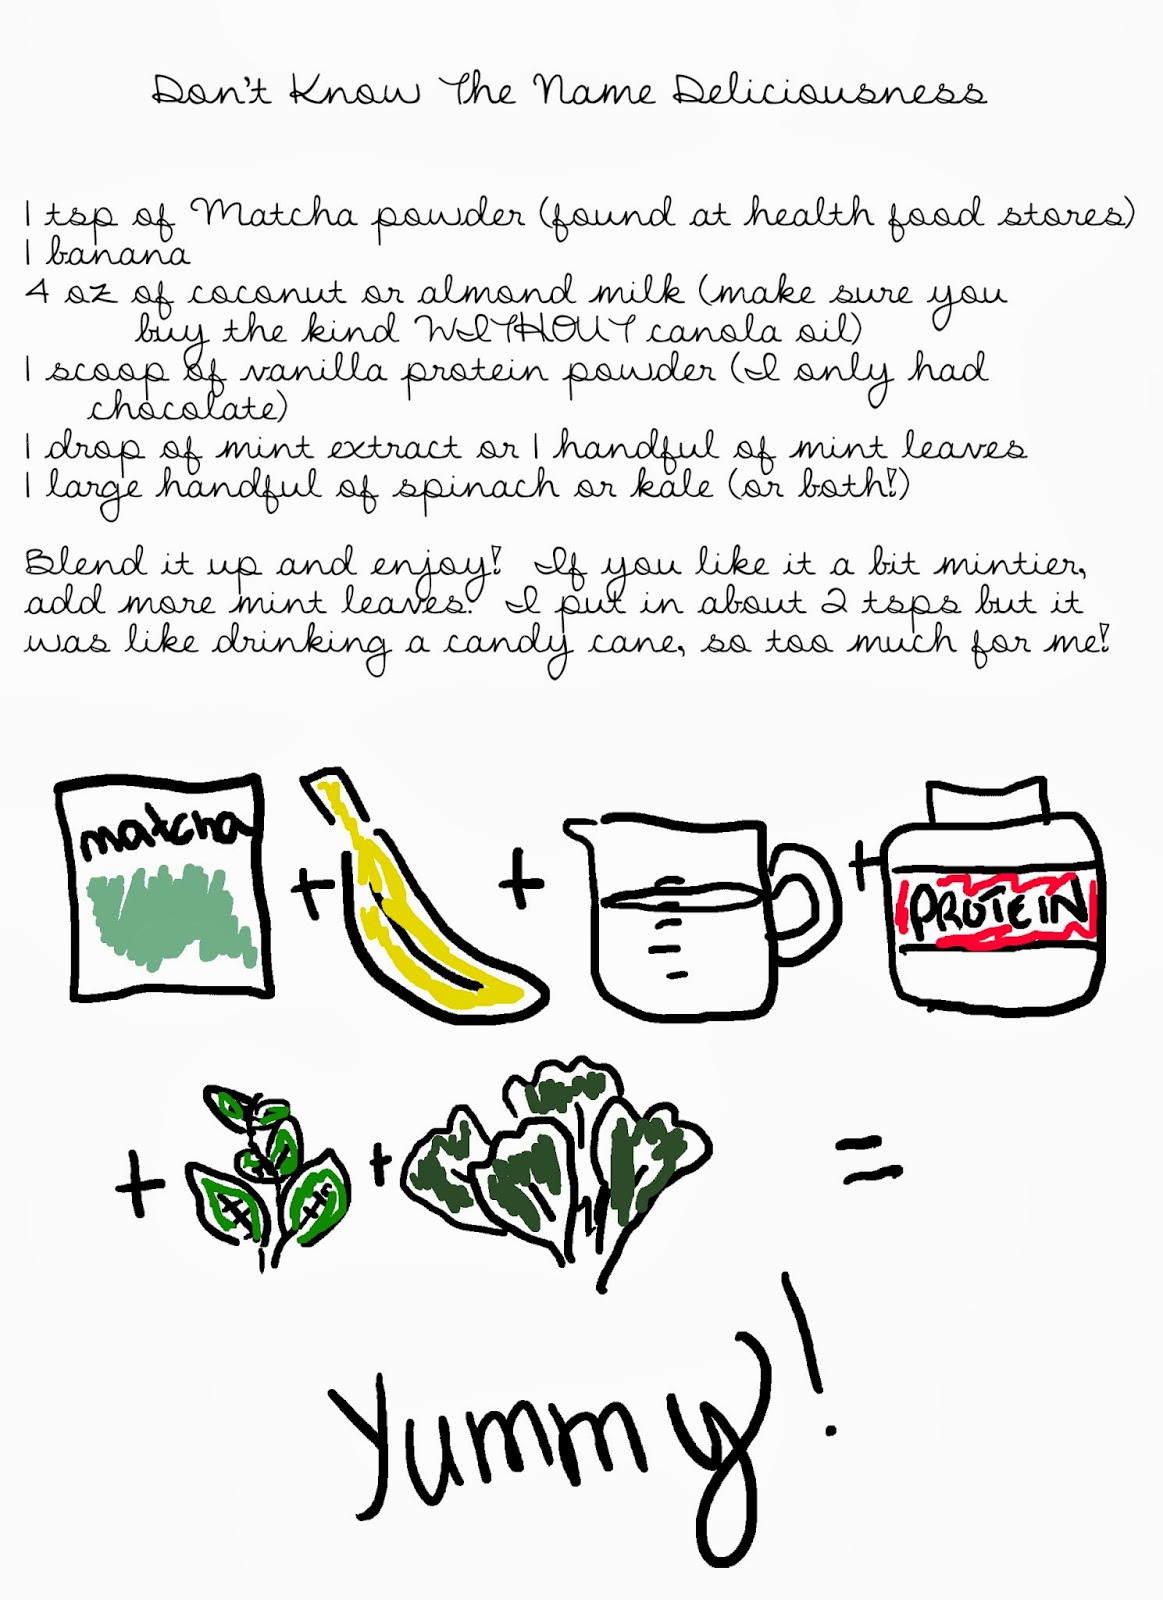 Don't Know The Name Deliciousness
1 tsp of Matcha powder (found at health food stores)
1 banana
4 oz of coconut or almond milk (make sure you
buy the kind WITHOUT canola oil)
1 scoop of vanilla protein powder (I only had
chocolate)
1 drop of mint extract or 1 handful of mint leaves
1 large handful of spinach or kale (or both!)
Blend it up and enjoy! If you like it a bit mintier,
add more mint leaves. I put in about 2 tsps but it
was like drinking a candy cane, so too much for me!
matcha + + + PROTEIN
+ + =
Yummy!